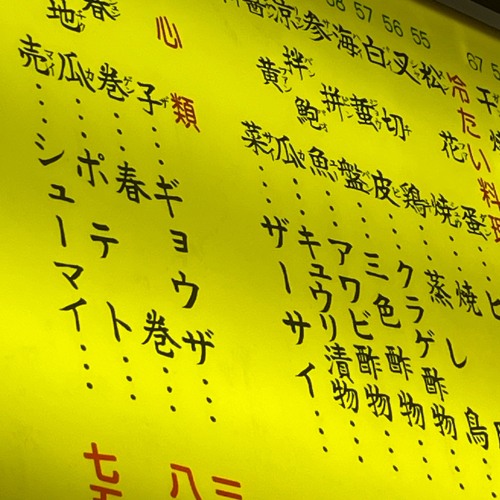 冷たい料理
58 57 56 55
松花蛋
叉焼
白切鶏……蒸し鳥
海蜇皮……クラゲ酢物
参拼盤……三色酢物
涼拌鮑魚……アワビ酢物
醤黄瓜……キュウリ漬物
菜……ザーサイ
心類
子……ギョウザ
春巻……春巻
地瓜……ポテト
売……シューマイ
三
八
七